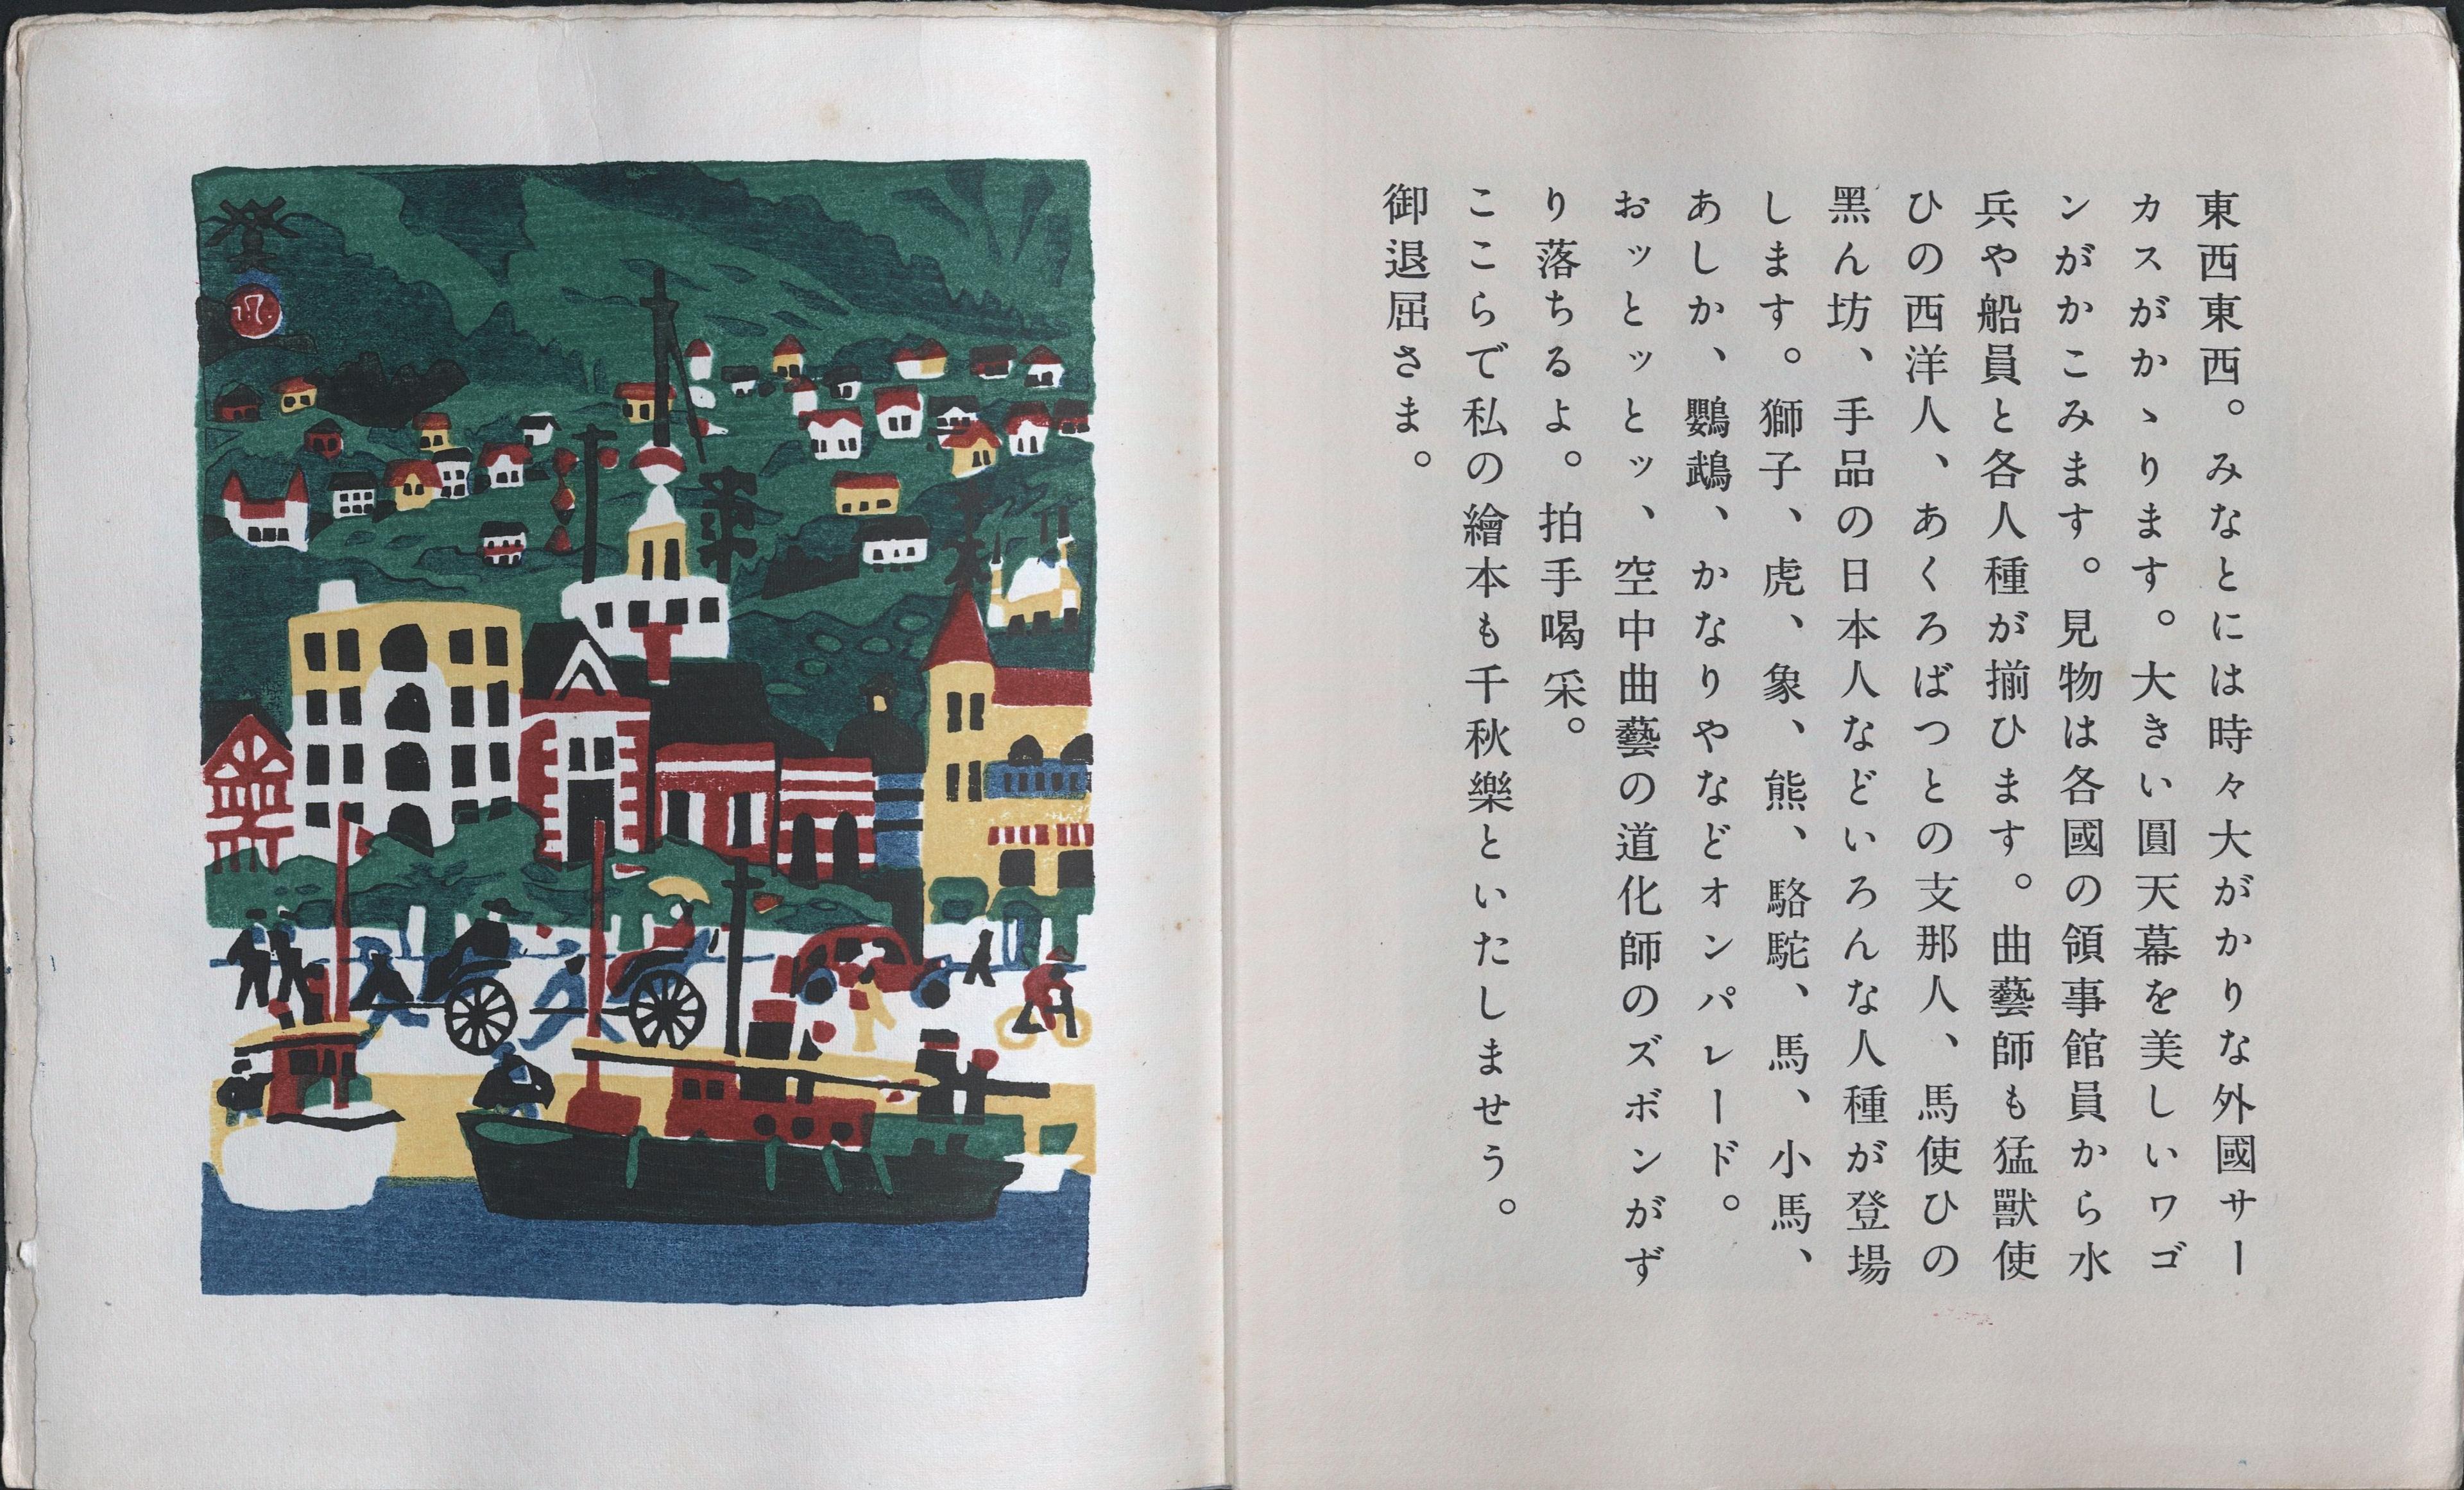 東西東西。みなとには時々大がかりな外國サー
カスがかゝります。大きい圓天幕を美しいワゴ
ンがかこみます。見物は各國の領事館員から水
兵や船員と各人種が揃ひます。曲藝師も猛獸使
ひの西洋人、あくろばつとの支那人、馬使ひの
黑ん坊、手品の日本人などいろんな人種が登場
します。獅子、虎、象、熊、駱駝、馬、小馬、
あしか、鸚鵡、かなりやなどオンパレード。
おッとッとッ、空中曲藝の道化師のズボンがず
り落ちるよ。拍手喝采。
ここらで私の繪本も千秋樂といたしませう。
御退屈さま。